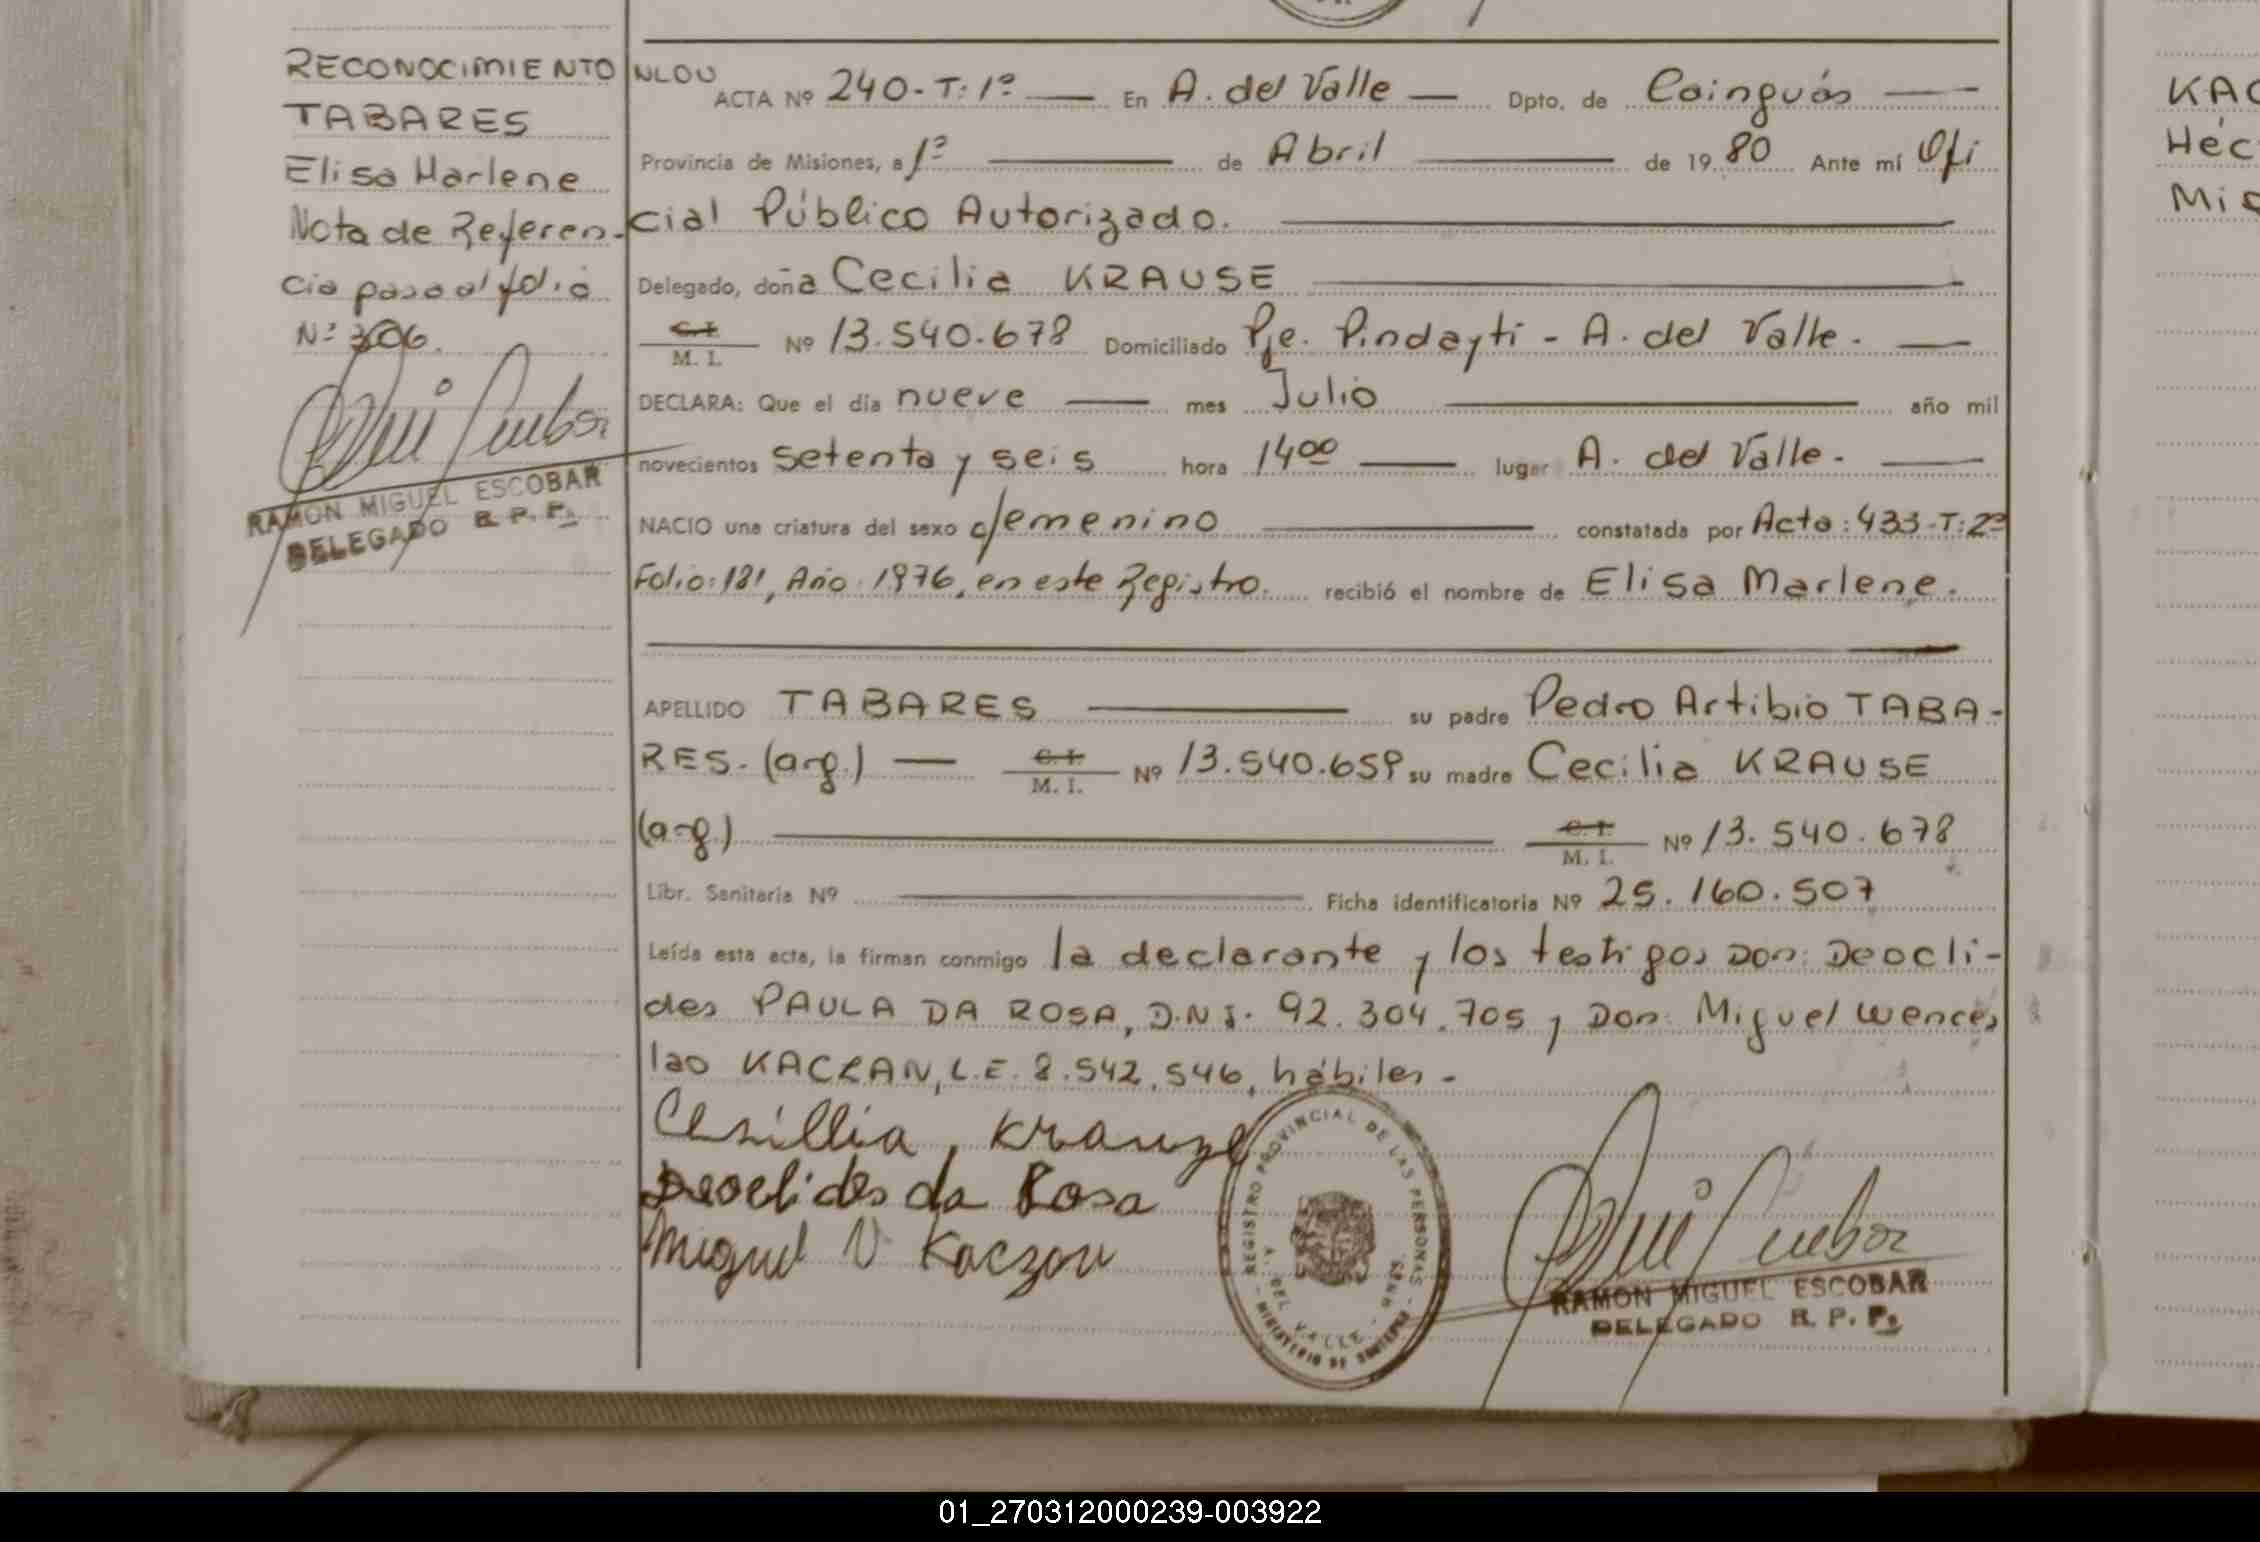 RECONOCIMIENTO
TABARES
Elisa Marlene
Nota de Referen-
cia pasa al folio
Nº 306.
RAMON MIGUEL ESCOBAR
DELEGADO R. P. P.
NLOU
ACTA Nº 240-T:1º En A. del Valle Dpto. de Cainguás
Provincia de Misiones, a 1º de Abril de 1980 Ante mí Ofi
cial Público Autorizado.
Delegado, doña Cecilia KRAUSE
C.I.
M. I. Nº 13.540.678 Domiciliado Pje. Pindayti - A. del Valle.
DECLARA: Que el día nueve mes Julio año mil
novecientos setenta y seis hora 14ºº lugar A. del Valle.
NACIO una criatura del sexo femenino constatada por Acta: 433-T:2º
Folio: 181, Año: 1976, en este Registro. recibió el nombre de Elisa Marlene.
APELLIDO TABARES su padre Pedro Artibio TABA-
RES. (arg.) C.I. M. I. Nº 13.540.659 su madre Cecilia KRAUSE
(arg.) C.I. M. I. Nº 13.540.678
Libr. Sanitaria Nº Ficha identificatoria Nº 25.160.507
Leída esta acta, la firman conmigo la declarante y los testigos Don: Deocli-
des PAULA DA ROSA, D.N.I. 92.304.705 y Don: Miguel Wences
lao KACZAN, L.E. 8.542.546, hábiles.-
Cesillia Krauze
Deoclides da Rosa
Miguel V Kaczan
REGISTRO PROVINCIAL DE LAS PERSONAS
A. DEL VALLE
MINISTERIO DE GOBIERNO
RAMON MIGUEL ESCOBAR
DELEGADO R. P. P.
KAC
Héc
Mi
01_270312000239-003922